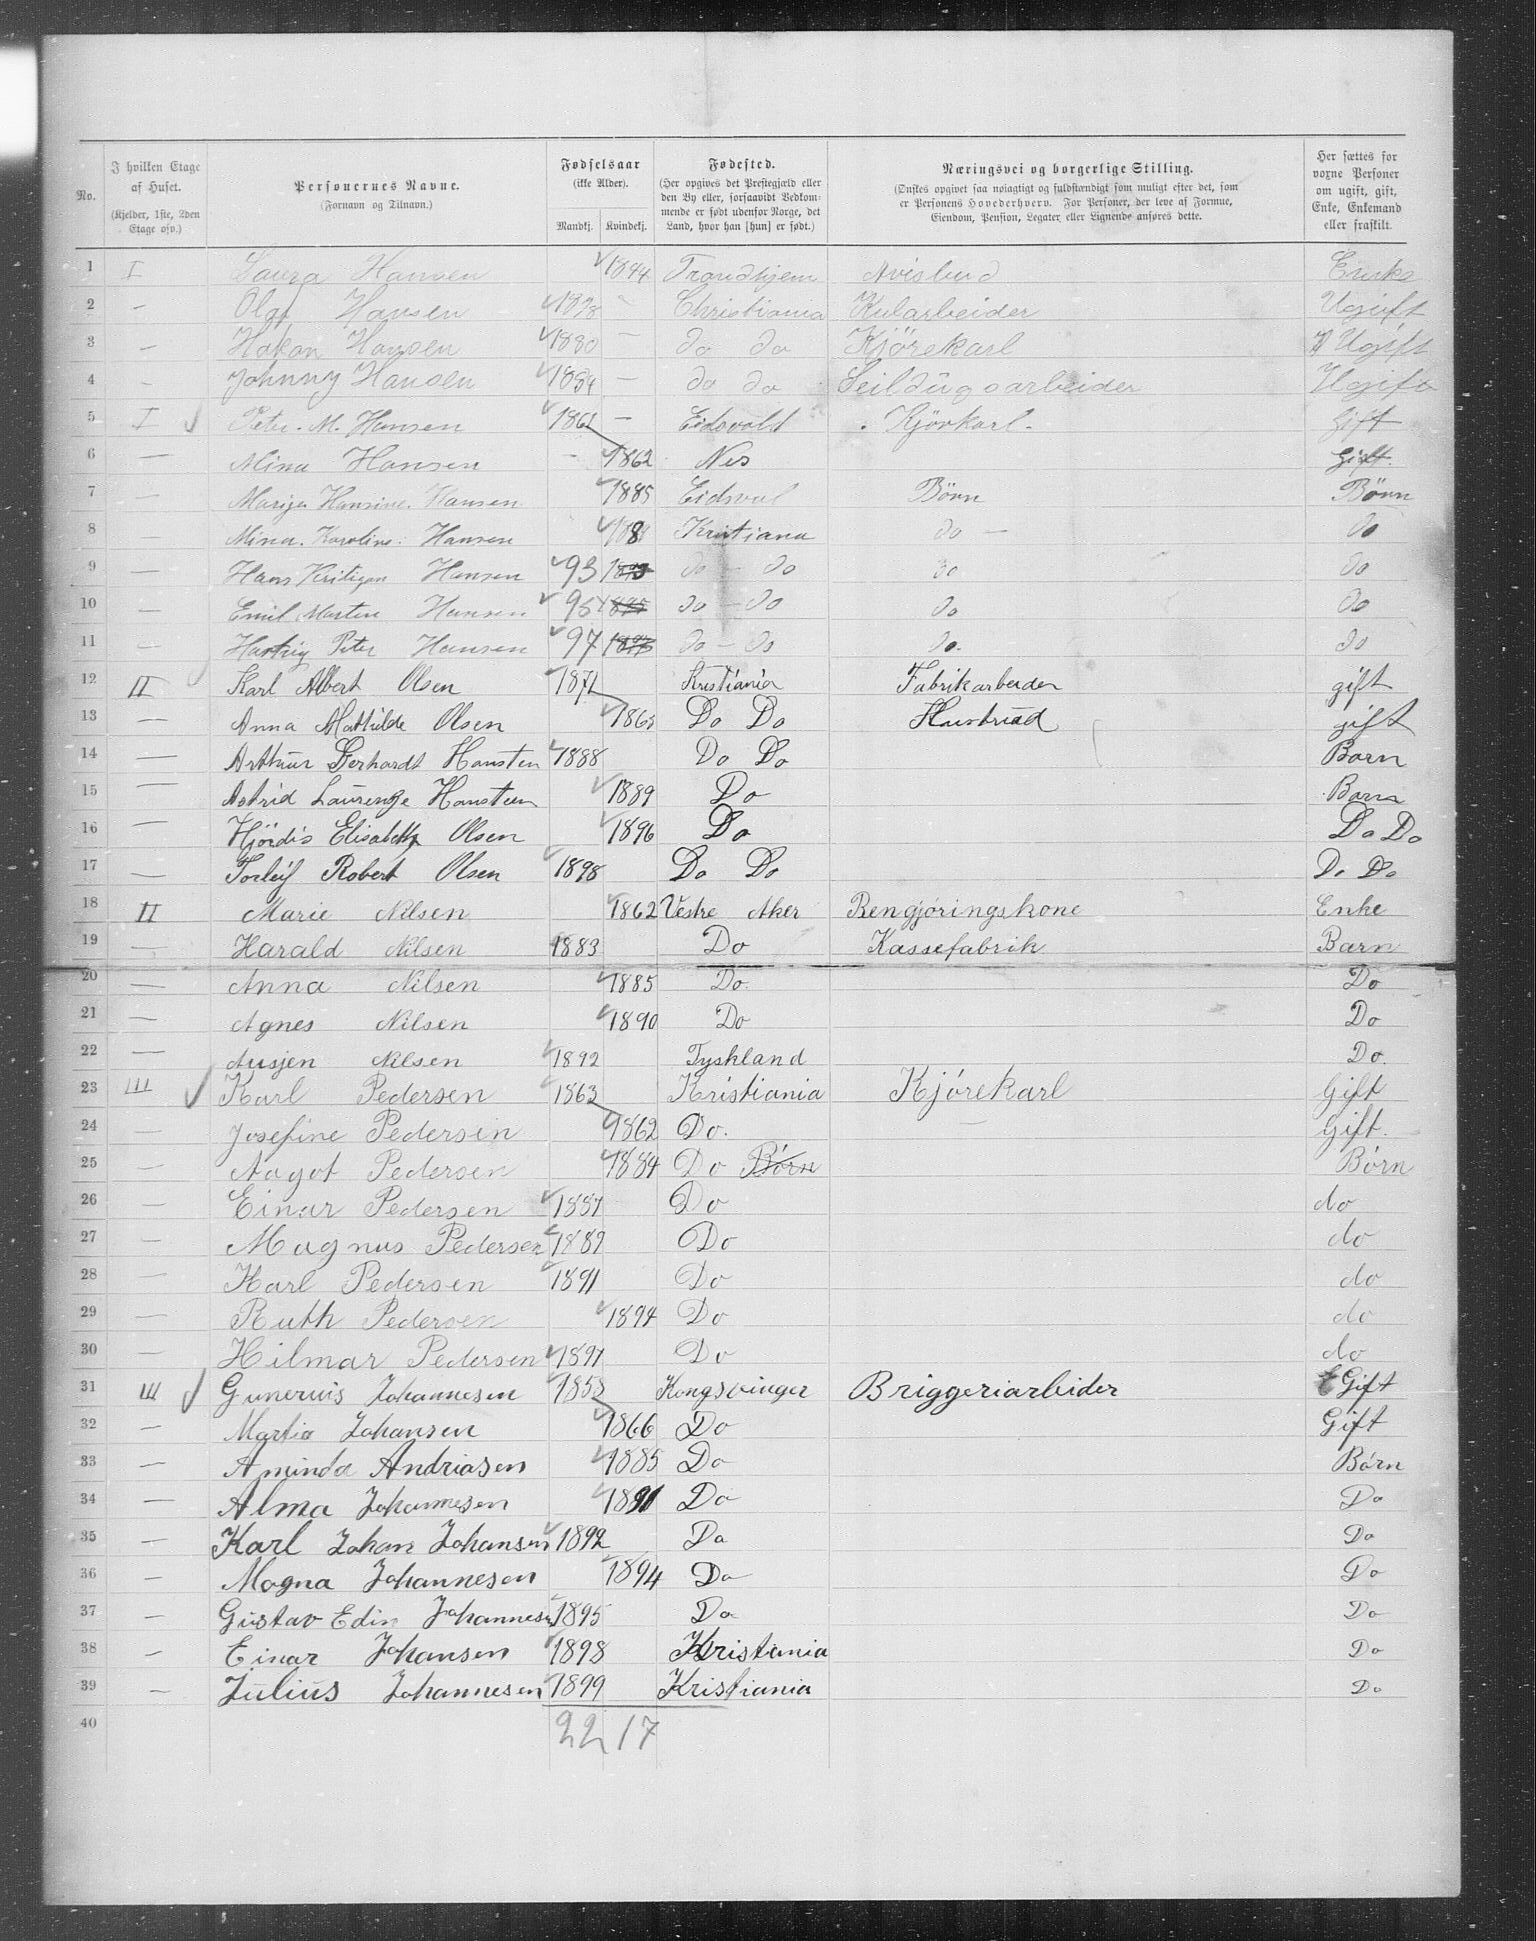 No. | I hvilken Etage af Huset. (Kjelder, 1ste, 2den Etage osv.) | Personernes Navne. (Fornavn og Tilnavn.) | Fødselsaar (ikke Alder). Mandkj. Kvindekj. | Fødested. (Her opgives det Prestegjæld eller den By eller, forsaavidt Vedkommende er født udenfor Norge, det Land, hvor han [hun] er født.) | Næringsvei og borgerlige Stilling. (Ønskes opgivet saa nøiagtigt og fuldstændigt som muligt efter det, som er Personens Hovederhverv. For Personer, der leve af Formue, Eiendom, Pension, Legater eller Lignende anføres dette. | Her sættes for voxne Personer om ugift, gift, Enke, Enkemand eller fraskilt.
1 I Laura Hansen 1844 Trondhjem Avisbud Enke
2 — Olaf Hansen 1878 Christiania Kularbeider Ugift
3 — Hakon Hansen 1880 — do do Kjörekarl Ugift
4 — Johnny Hansen 1884 — do do Seildugsarbeider Ugift
5 I Peter. M. Hansen 1861 — Eidsvold Kjörkarl. Gift
6 — Mina Hansen - 1862 Nes Gift.
7 — Hansine Hansen 1885 Eidsvol Börn Börn
8 — Mina. Karoline. Hansen Kristiana do — do
9 — Hans Kritian Hansen 93 do — do do do
10 — Emil Martin Hansen 95 do — do do do
11 — Peter Hansen 97 do — do do. do
12 II Karl Albert Olsen 1871 Kristiania Fabrikarbeider gift
13 — Anna Mathilde Olsen 1865 Do Do Hustrud gift
14 — Arthur Gerhardt Hansten 1888 Do Do Barn
15 — Astrid Laurense Hansteen 1889 Do Barn
16 — Hjördis Elisabeth Olsen 1896 Do Do Do
17 — Torleif Robert Olsen 1898 Do Do Do Do
18 II Marie Nilsen 1862 Vestre Aker Rengjøringskone Enke
19 — Harald Nilsen 1883 Do Kassefabrik Barn
20 — Anna Nilsen 1885 Do. Do
21 — Agnes Nilsen 1890 Do Do
22 — Ausjen Nilsen 1892 Tyskland Do.
23 III Karl Pedersen 1863 Kristiania Kjórekarl Gift
24 — Josefine Pedersen 1862 Do. — Gift.
25 — Aagot Pedersen 1884 Do Börn Börn
26 — Einar Pedersen 1887 Do do
27 — Magnus Pedersen 1889 Do do
28 — Karl Pedersen 1891 Do do
29 — Ruth Pedersen 1894 Do do
30 — Hilmar Pedersen 1897 Do do
31 III Gunerius Johannesen 1858 Kongsvinger Briggeriarbeider Gift
32 — Martia Johansen 1866 Do Gift
33 — Aminda Andriasen 1885 Do Børn
34 — Alma Johannesen 1891 Do Do
35 — Karl Johan Johansen 1892 Do Do
36 — Magna Johannesen 1894 Do Do
37 — Gustav Edin Johannesen 1895 Do Do
38 — Einar Johansen 1898 Kristania Do
39 — Julius Johannesen 1899 Kristiania Do
40
22 17